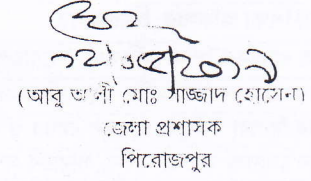 (আবু আলী মোঃ সাজ্জাদ হোসেন)
জেলা প্রশাসক
পিরোজপুর